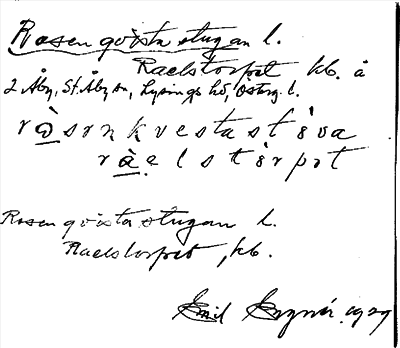 Rosenqvistastugan l.
Raelstorpet kb. å
2 Åby, St. Åby sn, Lysings hd, Österg. l.
ròsənkvestastèva
ràelstòrpət
Rosenqvistastugan l.
Raelstorpet, kb.
Emil 1929